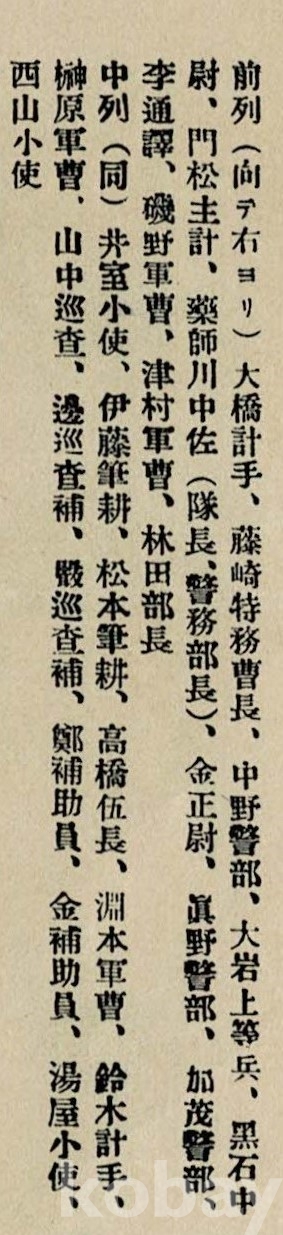 前列(向テ右ヨリ)大橋計手、藤崎特務曹長、中野警部、大岩上等兵、黑石中
尉、門松主計、藥師川中佐(隊長、警務部長)、金正尉、眞野警部、加茂警部、
李通譯、磯野軍曹、津村軍曹、林田部長
中列(同)井室小使、伊藤筆耕、松本筆耕、高橋伍長、淵本軍曹、鈴木計手、
榊原軍曹、山中巡査、邊巡査補、殷巡査補、鄭補助員、金補助員、湯屋小使、
西山小使
kobay